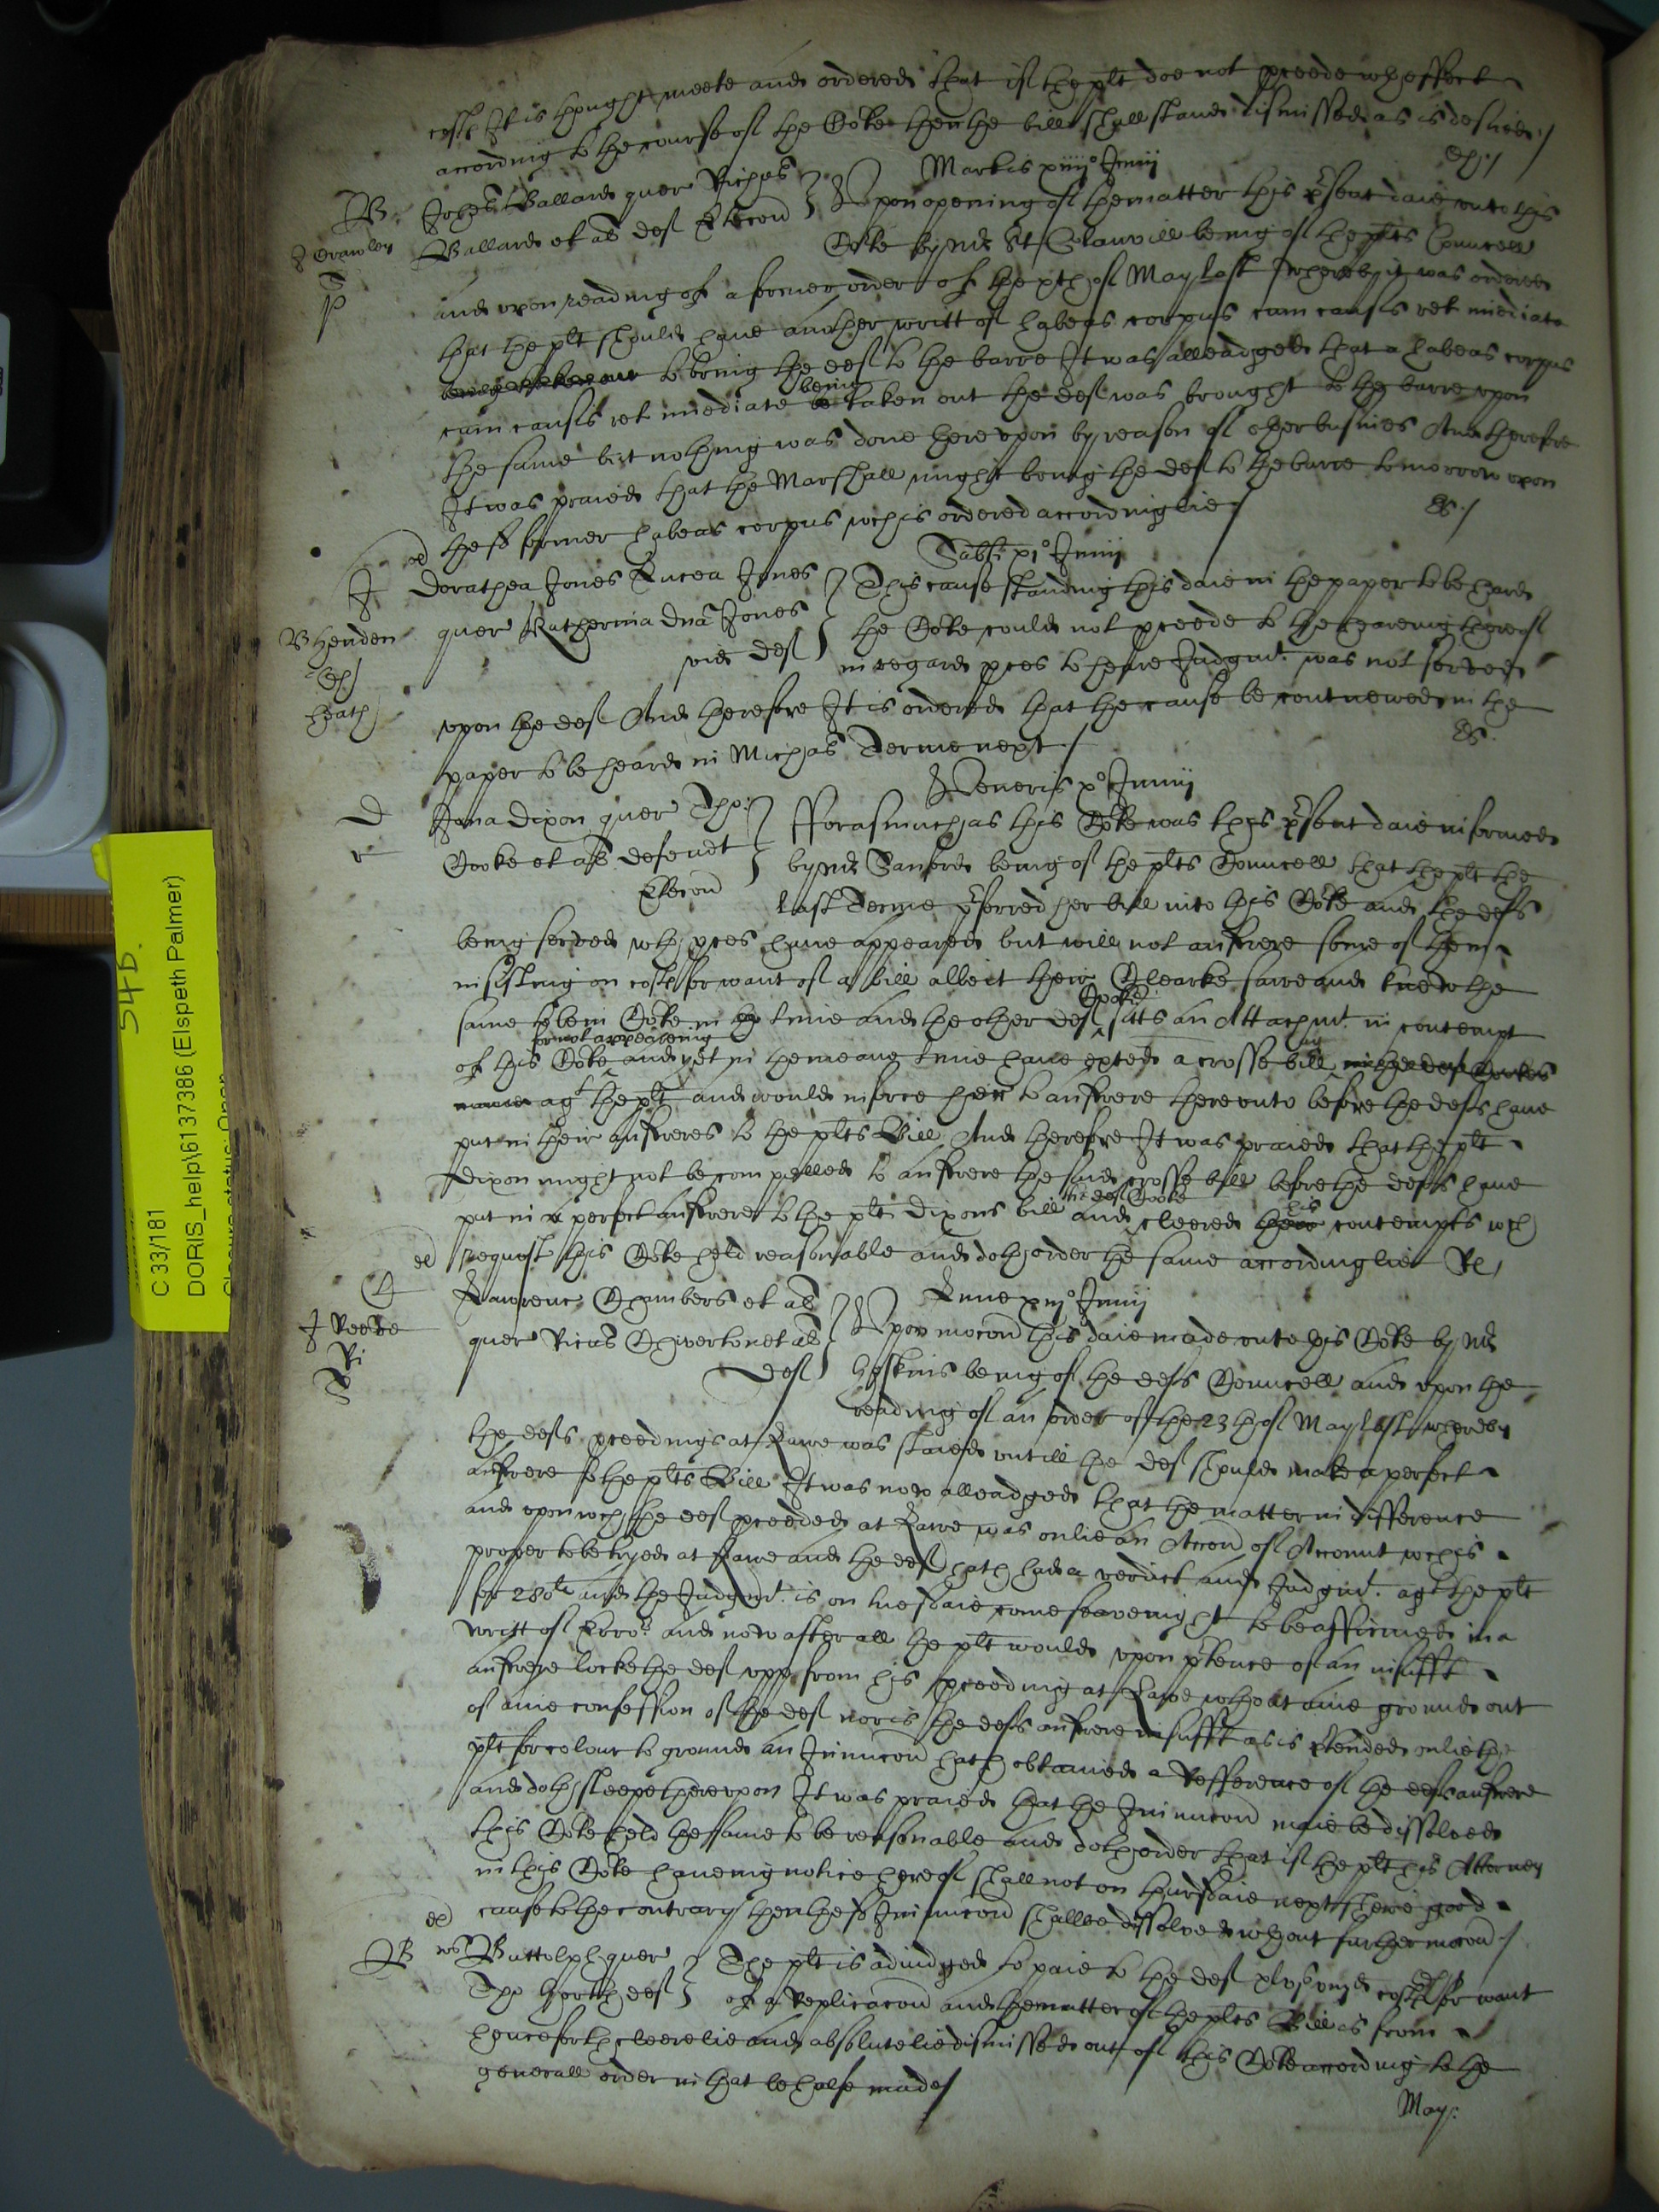 costs It is thought meete and ordered that if the plt doe not pceede wth effect
according to the course of the Cote then the bill shall stand dismissed as is desired /
Martis xiiijo Junij
B
J Crawley
P
Josephus Ballard quer Richas
Ballard et al def Eleccon
Upon opening of the matter this pnte daie unto this
Cote by Mr St Glanvill being of the plts Councell
and upon reading of a former order of the xth of May last whereby it was ordered
that the plt should have another writt of habeas corpus cum causis ret imediate
to bring the def to the barre It was alleadged that a habeas corpus
cum causis ret imediate being taken out the def was brought to the barre upon
the same but nothing was done thereupon by reason of other busines And therefore
It was praied that the Marshall might bring the def to the barre tomorrow upon
the sd former habeas corpus wch is ordered accordinglie /
Sabti xjo Junij
J
B Henden
Heath
Dorathea Jones Lucea Jones
quer Katherina dna Jones
vid def
This cause standing this daie in the paper to be hard
the Cote could not pceede to the heareing thereof
in regard pces to heare Judgmt was not served
upon the def And therefore It is ordered that the cause be contynewed in the
paper to be heard in Michas Terme next /
Veneris xo Junij
D
r
Jana Dixon quer Tho:
Cooke et als defendt
Eleccon
Fforasmuch as this Cote was this psent daie informed
by Mr Sanford being of the plts Councell that the plt the
last Terme pferred her bill into this Cote and the defs
being served wth pces have appeared but will not answere some of them
insisting on costs for want of a bill albeit their Clearke sawe and knew the
same to be in Cote in time and the other def Cooke sitts an Attachmt in contempt
of this Cote for not appeareing and yet in the meane time have exted a crosse bill
agt the plt and would inforce her to answere thereunto before the defs have
put in their answeres to the plts Bill And therefore It was praied that the plt
Dixon might not be compelled to answere the said crosse bill before the defs have
put in a perfect answere to the plt Dixons bill and the def Cooke cleered his contempts wch
request this Cote held reasonable and doth order the same accordinglie
Lune xiijo Junij
C
J Reeve
Ri
Lawrenc Chambers et al
quer Ricus Chiverton et al
def
Upon mocon this daie made unto this Cote by Mr
Hoskins being of the defs Councell and upon the
reading of an order of the 23th of May last whereby
the defs pceedings at Lawe was staied untill the def should make a perfect
answere to the plts Bill It was now alleadged that the matter in difference
and upon wch the def pceeded at Lawe was onlie an Accon of Accomut wch is
proper to be tryed at Lawe and the def hath had a verdict and Judgmt agt the plt
for 280li and the Judgmt is on tuesdaie come seavenight to be affirmed in a
writt of Error and now after all the plt would upon ptence of an insufft
answere locke the def upp from his pceeding at Lawe wthout anie ground out
of anie confession of the def nor is the defs answere insufft as is ptended onlie the
plt for colour to ground an Iniunccon hath obtained a Refference of the defs answere
and doth sleepe thereupon It was praied that the Iniunccon maie be dissolved
this Cote held the same to be reasonable and doth order that if the plt his Attorney
in this Cote haveing notice hereof shall not on thursdaie next shewe good
cause to the contrary then the sd Iniunccon shalbe dissolved wthout further mocon /
B
Buttolph quer
Tho North def
The plt is adiudged to paie to the def costs for want
of a Replicacon and the matter of the plts Bill is from
henceforth cleerelie and absolutelie dismissed out of this Cote according to the
generall order in that behalfe made /
May:
54D.
C 33/181
DORIS_help\6137386 (Elspeth Palmer)